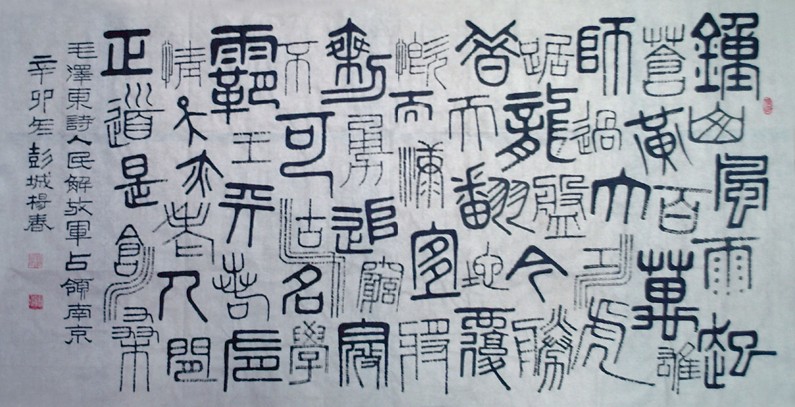 鍾山風雨起
蒼黃百萬雄
師過大江虎
踞龍盤今勝
昔天翻地覆
慨而慷宜將
剩勇追窮寇
不可沽名學
霸王天若有
情天亦老人間
正道是滄桑
毛澤東詩人民解放軍占領南京
辛卯年彭城楊春